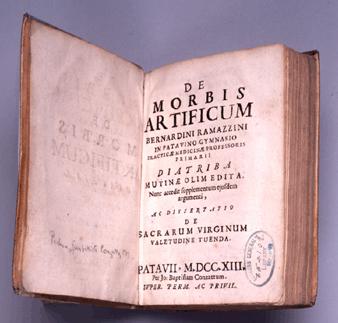 DE
MORBIS
ARTIFICUM
BERNARDINI RAMAZZINI
IN PATAVINO GYMNASIO
PRACTICÆ MEDICINÆ PROFESSORIS
PRIMARII
DIATRIBA
MUTINÆ OLIM EDITA.
Nunc accedit supplementum ejusdem
argumenti,
AC DISSERTATIO
DE
SACRARUM VIRGINUM
VALETUDINE TUENDA.
PATAVII M.DCC.XIII.
Per Jo. Baptistam Conzattum.
SUPER. PERM. AC PRIVIL.